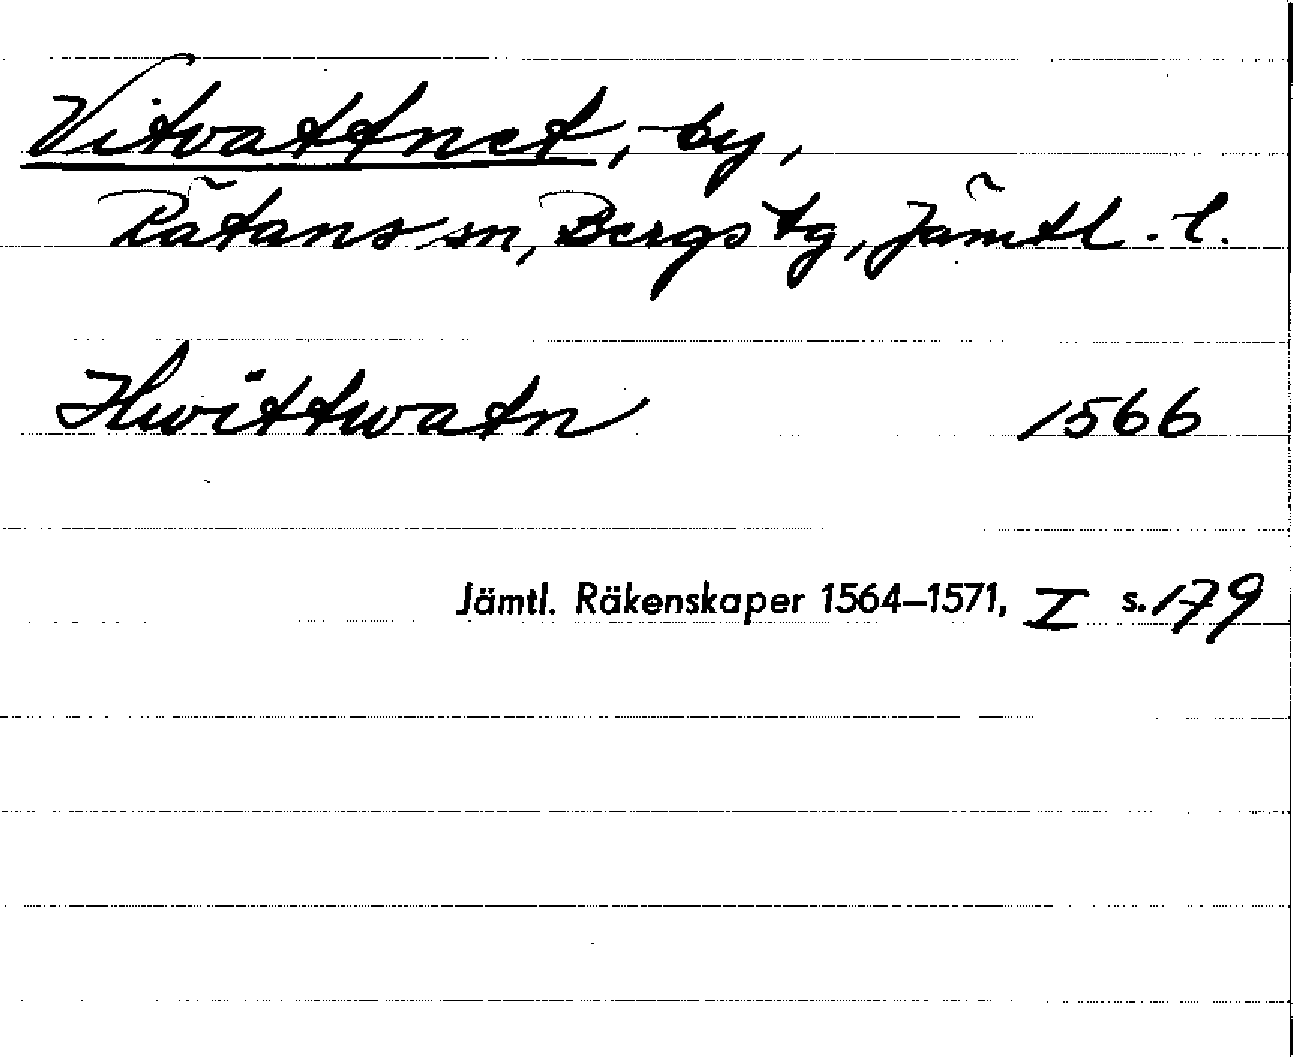 Vitvattnet, by,
Rätans sn, Bergs tg, Jämtl. l.
Hwittwatn 1566
Jämtl. Räkenskaper 1564–1571, I s. 179